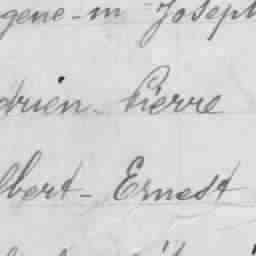 gene-m Joseph
drien-Pierre
lbert-Ernest